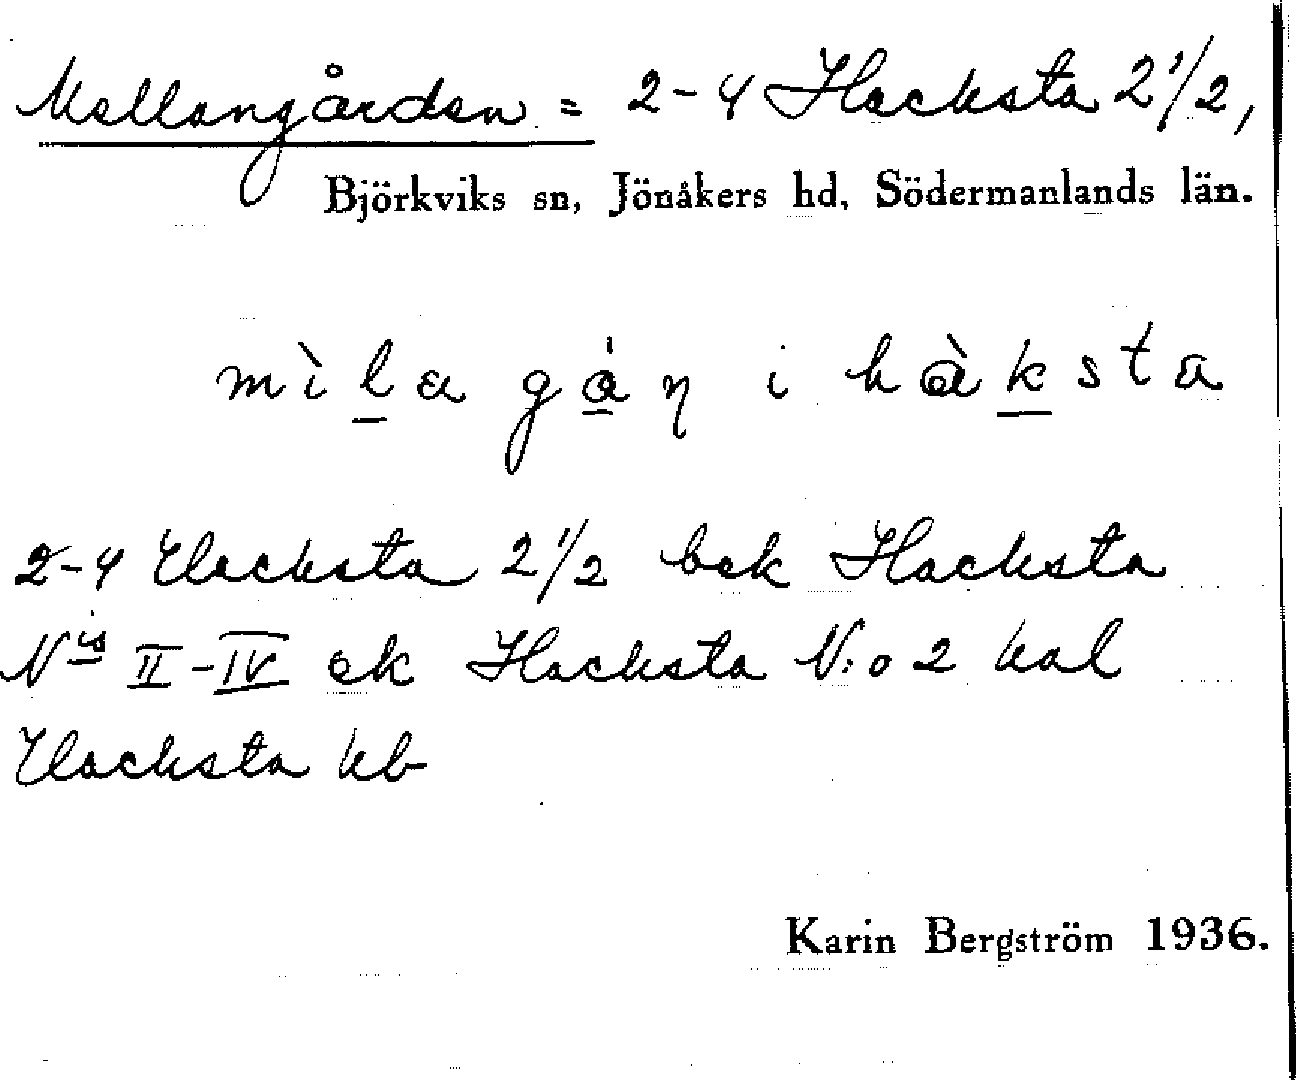 Mellangården = 2-4 Hacksta 2 1/2,
Björkviks sn, Jönåkers hd, Södermanlands län.
mìla gáɳ i hàksta
2-4 Hacksta 2 1/2 bek Hacksta
Nis II-IV ek Hacksta N:o 2 hal
Hacksta kb
Karin Bergström 1936.